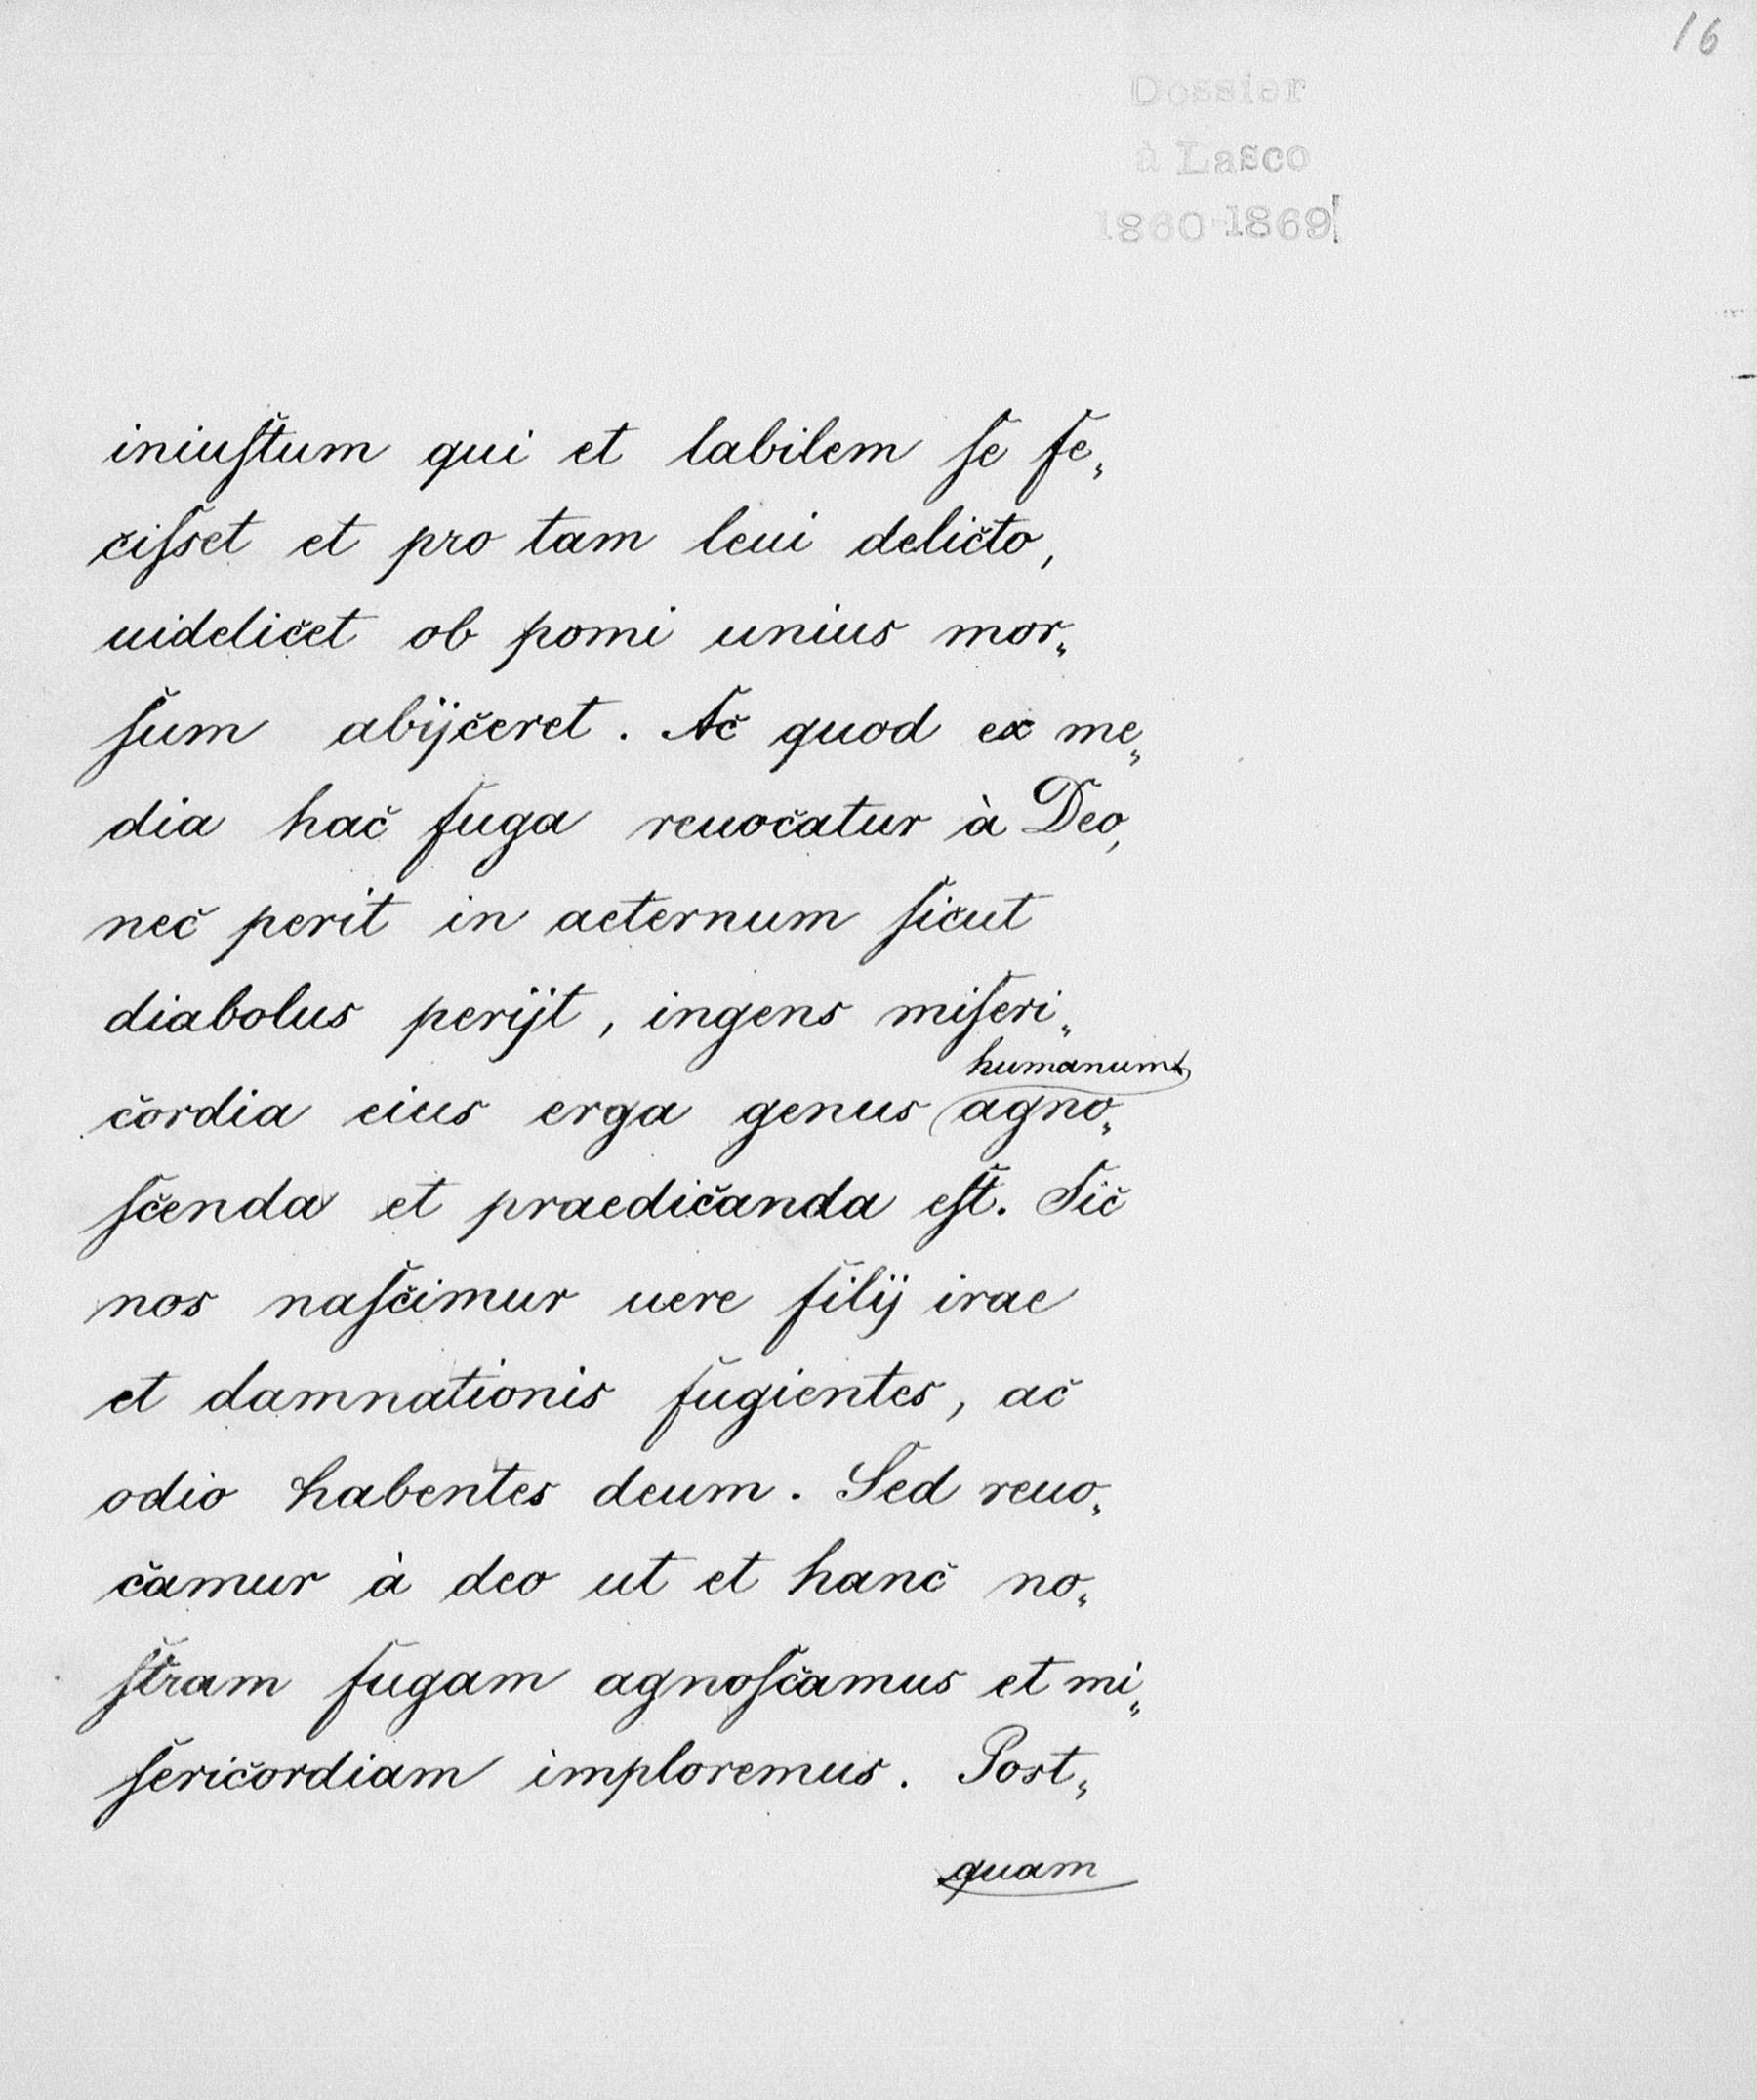 16
Dossier
à Lasco
1860-1869
iniuſtum qui et labilem ſe fe„
ciſset et pro tam leui delicto,
uidelicet ob pomi unius mor„
ſum abijceret. Ac quod ex me„
dia hac fuga reuocatur à Deo,
nec perit in aeternum ſicut
diabolus perijt, ingens miſeri„
humanum
cordia eius erga genus agno„
ſcenda et praedicanda eſt. Sic
nos naſcimur uere filij irae
et damnationis fugientes, ac
odio habentes deum. Sed reuo„
camur à deo ut et hanc no„
ſtram fugam agnoſcamus et mi„
ſericordiam imploremus. Post„
quam